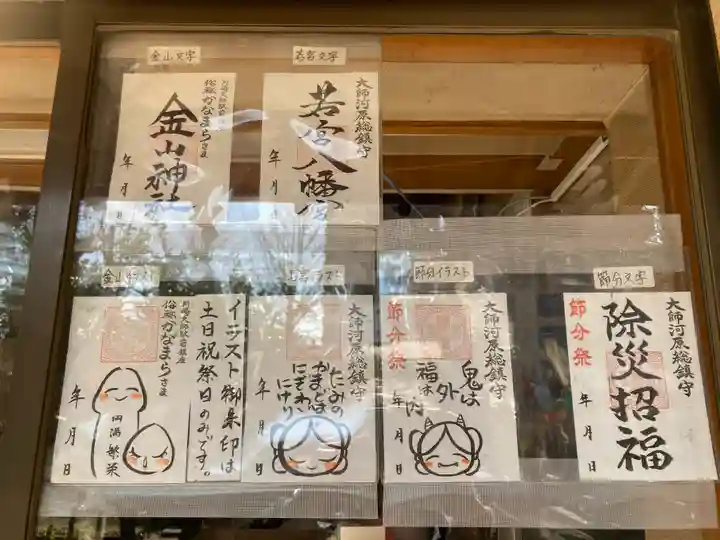 金山文字
若宮文字
川崎大師駅前鎮座
俗称かなまらさま
金山神社
年月日
大師河原総鎮守
若宮八幡宮
年月日
金山イラスト
川崎大師駅前鎮座
俗称かなまらさま
円満繁栄
年月日
イラスト御朱印は
土日祝祭日のみです。
若宮イラスト
大師河原総鎮守
たみの
かまどは
にぎわい
にけり
年月日
節分イラスト
大師河原総鎮守
節分祭
鬼は
外
福は
内
年月日
節分文字
大師河原総鎮守
節分祭
除災招福
年月日